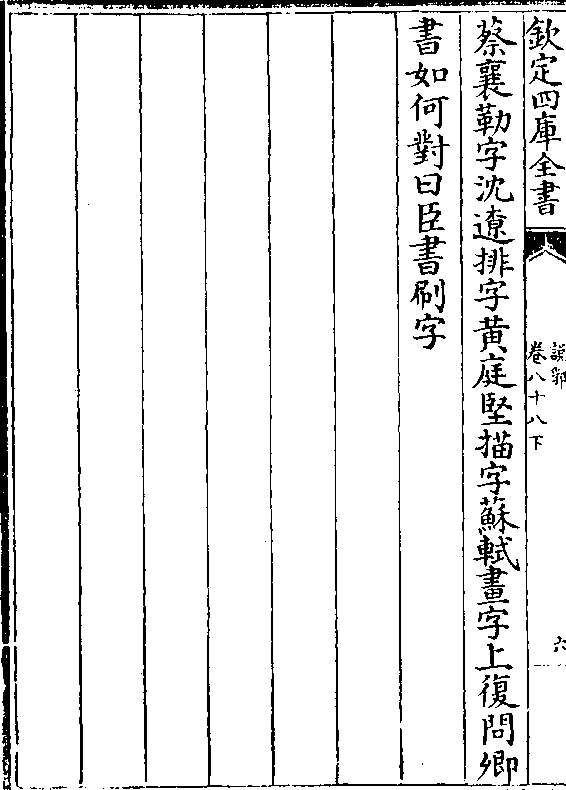 欽定四庫全書
說郛
卷八十八下
六
蔡襄勒字沈遼排字黄庭堅描字蘇軾畫字上復問卿
書如何對曰臣書刷字